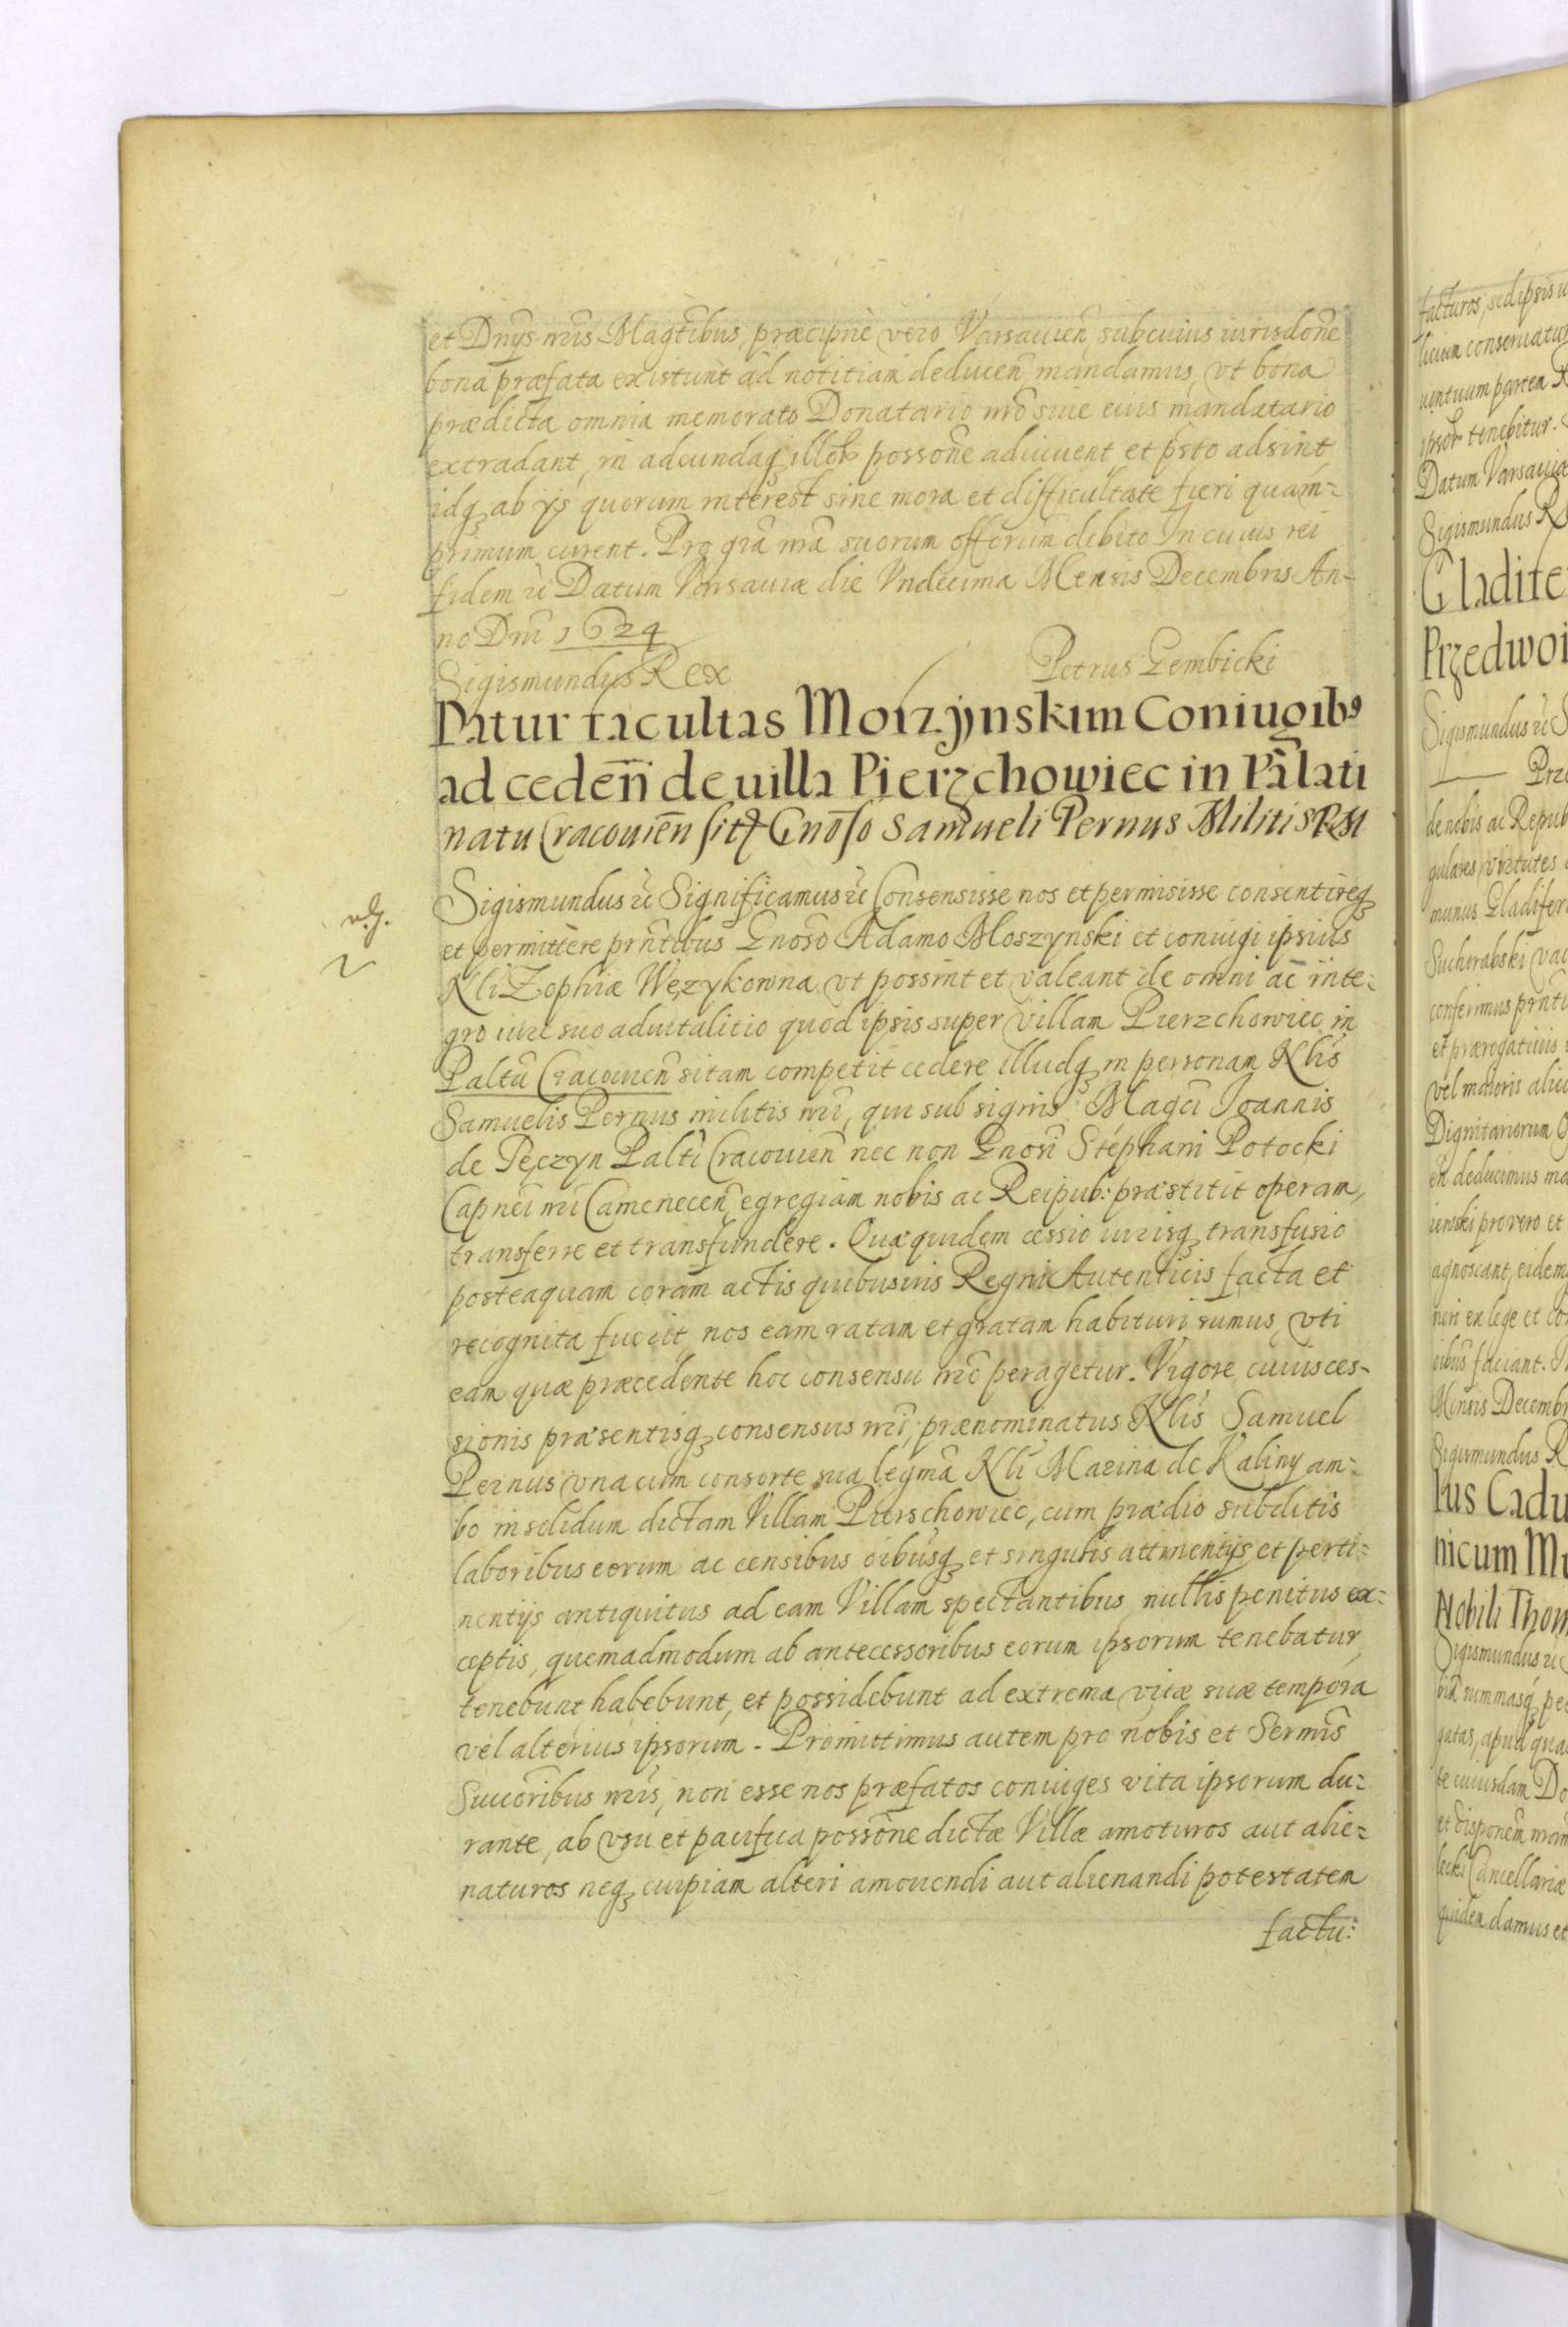 et Dnijs nris Magtibus, præcipuè vero Varsavien, sub cuius iurisdone
bona præfata existunt ad notitiam deducen, mandamus, vt bona
prædicta omnia memorato Donatario nro siue eius mandatario
extradant, in adeundaq illor possone adiuvent et psto adsint
idq ab ijs quorum interest sine mora et difficultate fieri quam=
primum curent. Pro gra nra suorum offorum debito In cuius rei
fidem etc Datum Varsaviæ die Vndecima Mensis Decembris An-
no Dni 1624
Sigismundus Rex Petrus Gembicki
Datur facultas Morzynskim Coniugibus
ad ceden de uilla Pierzchowiec in Palati
natu Cracouien sit Gnoso Samueli Pernus Militi SRM
Sigismundus etc Significamus etc Consensisse nos et permisisse consentireq
et permittere prntibus Gnoso Adamo Moszynski et coniugi ipsius
Nli Zophiæ Wezykowna vt possint et valeant de omni ac inte=
gro iure suo aduitalitio quod ipsis super villam Pierzchowiec in
Paltu Cracouien sitam competit cedere illudq in personam Nlis
Samuelis Pernus militis nri, qui sub signis Magci Joannis
de Tęczyn Palti Cracouien nec non Gnosi Stephani Potocki
Capnei nri Camenecen egregiam nobis ac Reipub: præstitit operam,
transferre et transfundere. Quæ quidem cessio iurisq transfusio
posteaquam coram actis quibusuis Regni Autenticis facta et
recognita fuerit, nos eam ratam et gratam habituri sumus, vti
eam quæ præcedente hoc consensu nro peragetur. Vigore, cuius ces-
sionis præsentisq consensus nri, prænominatus Nlis Samuel
Pernus vna cum consorte sua legma Nli Marina de Kaliny am=
bo in solidum dictam Villam Pierschowiec, cum prædio subditis
laboribus eorum ac censibus oibusq et singulis attinentijs et perti=
nentijs antiquitus ad eam Villam spectantibus, nullis penitus ex=
ceptis, quemadmodum ab antecessoribus eorum ipsorum tenebatur,
tenebunt habebunt, et possidebunt ad extrema vitæ suæ tempora
vel alterius ipsorum. Promittimus autem pro nobis et Sermis
Succoribus nris, non esse nos præfatos coniuges vita ipsorum du=
rante, ab vsu et pacifica possone dictæ Villæ amoturos aut alie=
naturos neq cuipiam alteri amouendi aut alienandi potestatem
factu: